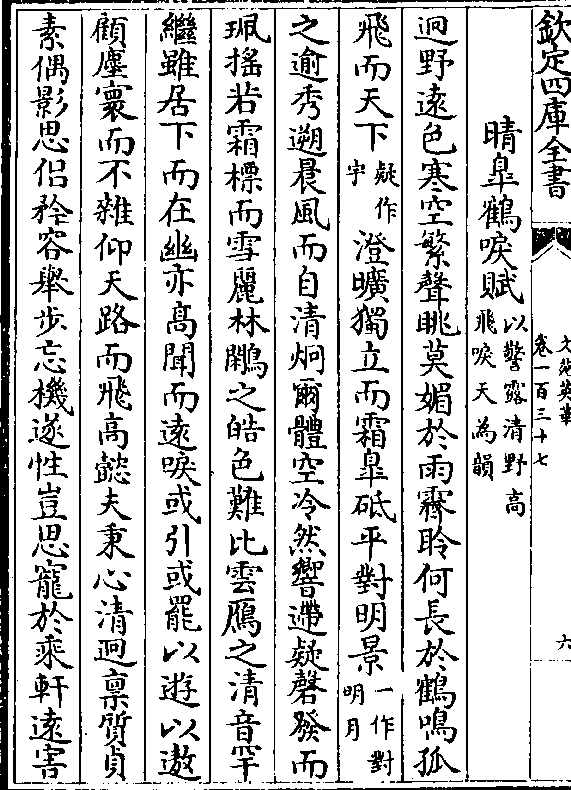 欽定四庫全書
文苑英華
卷一百三十七
六
晴臯鶴唳賦
以警露清野高
飛唳天為韻
迥野逺色寒空繁聲眺莫媚於雨霽聆何長於鶴鳴孤
飛而天下
疑作
宇
澄曠獨立而霜臯砥平對明景
一作對
明月
之逾秀遡晨風而自清炯爾體空冷然響遰疑磬發而
珮摇若霜標而雪麗林鷴之皓色難比雲鴈之清音罕
繼雖居下而在幽亦髙聞而逺唳或引或罷以遊以遨
顧塵寰而不雜仰天路而飛高懿夫秉心清迥禀質貞
素偶影思侶矜容舉步忘機遂性豈思寵於乘軒逺害